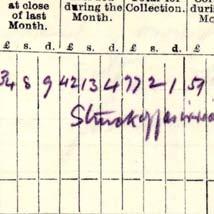 at close during the Collection. du
of last Month. Mon
Month.
£ s. d. £ s. d. £ s. d. £
34 8 9 42 13 4 77 2 1 57